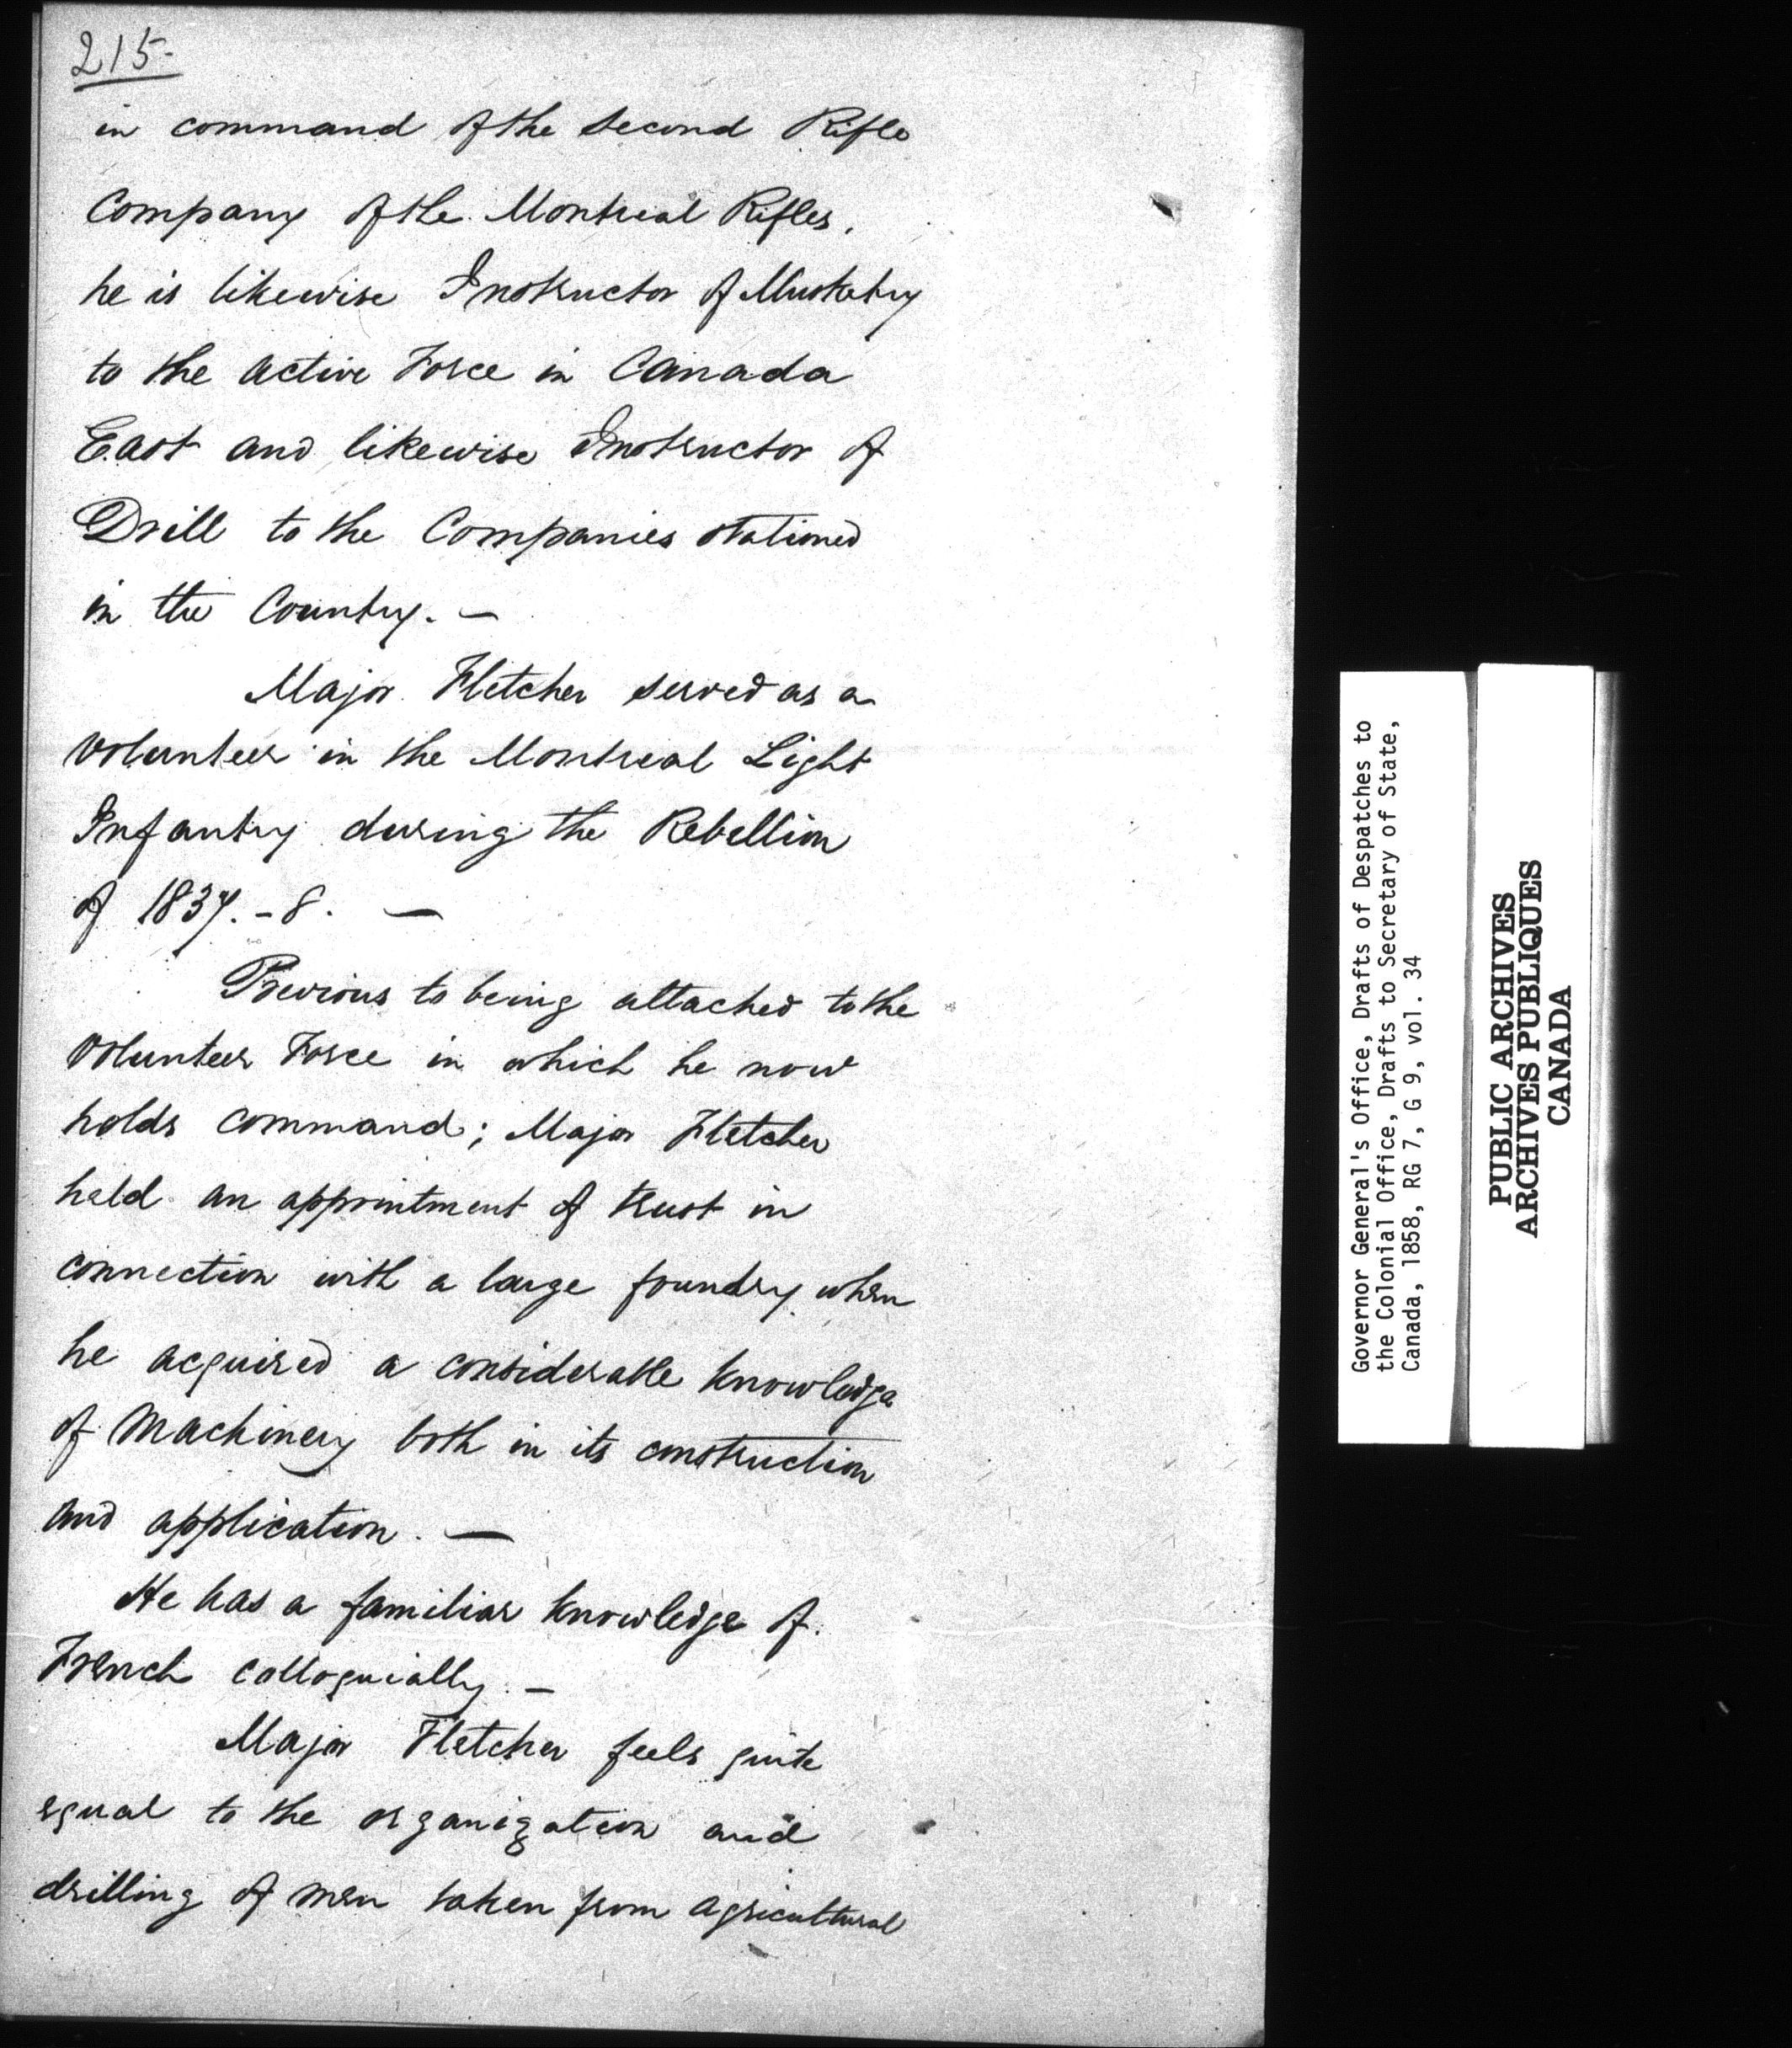 215-
in command of the second Rifle
Company of the Montreal Rifles.
he is likewise Instructor of Musketry
to the active Force in Canada
East and likewise Instructor of
Drill to the Companies stationed
in the Country. —
Major Fletcher served as a
volunteer in the Montreal Light
Infantry during the Rebellion
of 1837.-8. —
Previous to being attached to the
Volunteer Force in which he now
holds command; Major Fletcher
held an appointment of trust in
connection with a large foundry when
he acquired a considerable knowledge
of Machinery both in its construction
and application. —
He has a familiar knowledge of
French colloquially. —
Major Fletcher feels quite
equal to the organization and
drilling of men taken from agricultural
Governor General's Office, Drafts of Despatches to
the Colonial Office, Drafts to Secretary of State,
Canada, 1858, RG 7, G 9, vol. 34
PUBLIC ARCHIVES
ARCHIVES PUBLIQUES
CANADA